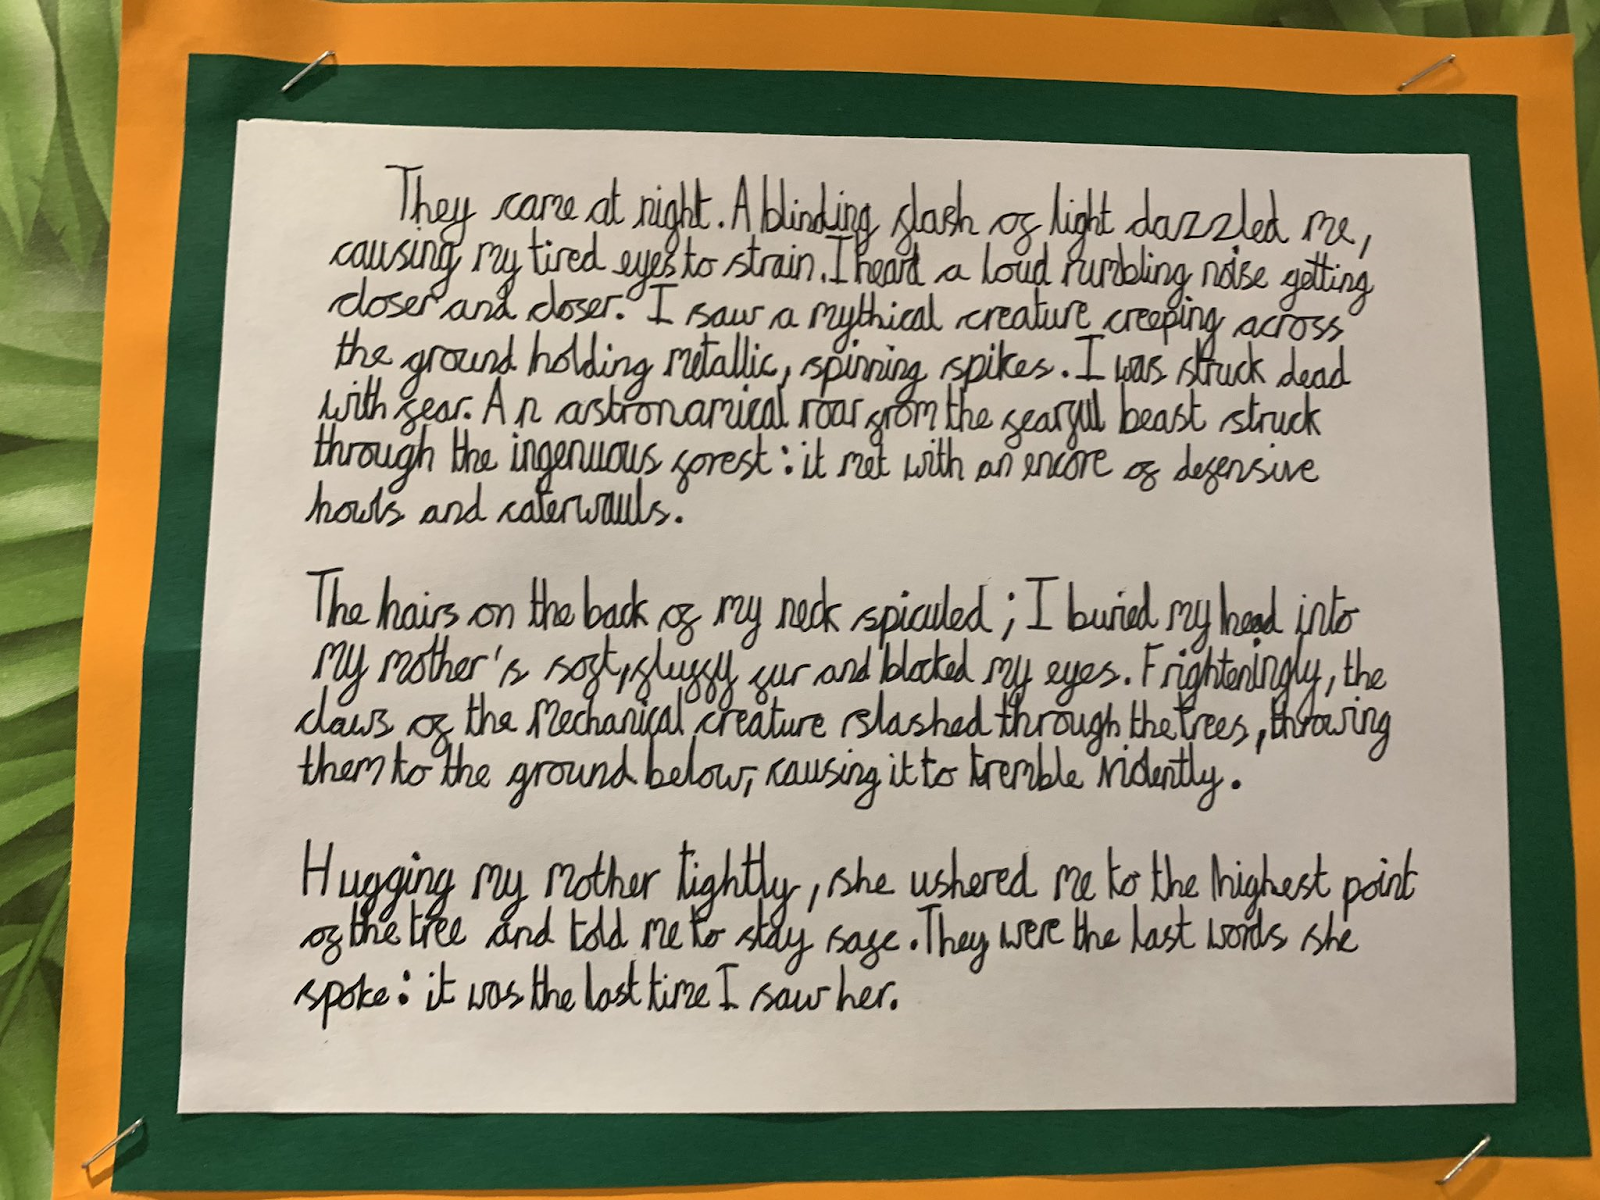 They came at night. A blinding flash of light dazzled me,
causing my tired eyes to strain. I heard a loud rumbling noise getting
closer and closer. I saw a mythical creature creeping across
the ground holding metallic, spinning spikes. I was struck dead
with fear. An astronamical roar from the fearful beast struck
through the ingenuous forest: it met with an encore of defensive
howls and caterwauls.
The hairs on the back of my neck spiculed; I buried my head into
my mother's soft, fluffy fur and blocked my eyes. Frighteningly, the
claws of the mechanical creature slashed through the trees, throwing
them to the ground below, causing it to tremble violently.
Hugging my mother tightly, she ushered me to the highest point
of the tree and told me to stay safe. They were the last words she
spoke: it was the last time I saw her.